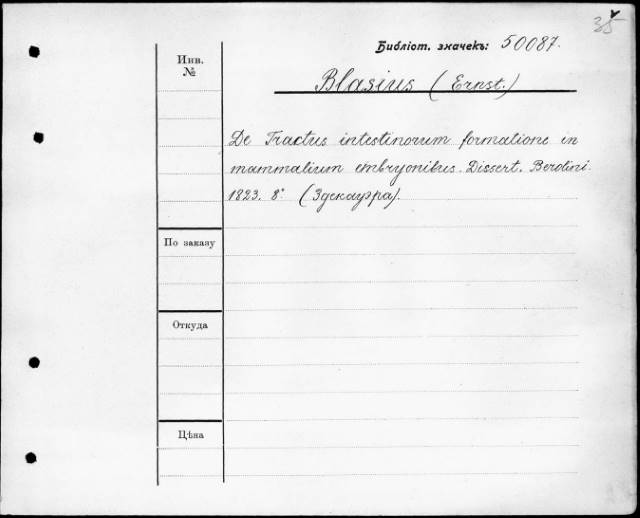 35
Библіот. значекъ: 50087.
Инв.
№
Blasius (Ernst.)
De Tractus intestinorum formatione in
mammalium embryonibus. Dissert. Berolini.
1823. 8° (Здекауэра).
По заказу
Откуда
Цѣна